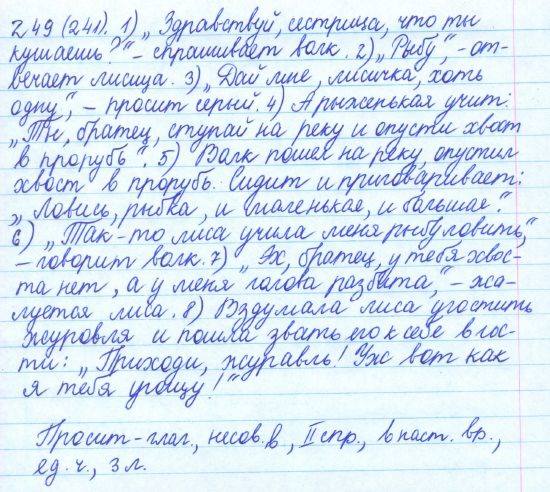 249 (241). 1) „Здравствуй, сестрица, что ты
кушаешь?" – спрашивает волк. 2) „Рыбу", – от-
вечает лисица. 3) „Дай мне, лисичка, хоть
одну", – просит серый. 4) А рыженькая учит:
„Ты, братец, ступай на реку и опусти хвост
в прорубь". 5) Волк пошел на реку, опустил
хвост в прорубь. Сидит и приговаривает:
„Ловись, рыбка, и маленькая, и большая".
6) „Так-то лиса учила меня рыбу ловить",
– говорит волк. 7) „Эх, братец, у тебя хвос-
та нет, а у меня голова разбита", – жа-
луется лиса. 8) Вздумала лиса угостить
журовля и пошла звать его к себе в гос-
ти: „Приходи, журавль! Уж вот как
я тебя угощу!"
Просит – глаг., несов. в, II спр., в наст. вр.,
ед. ч., 3 л.